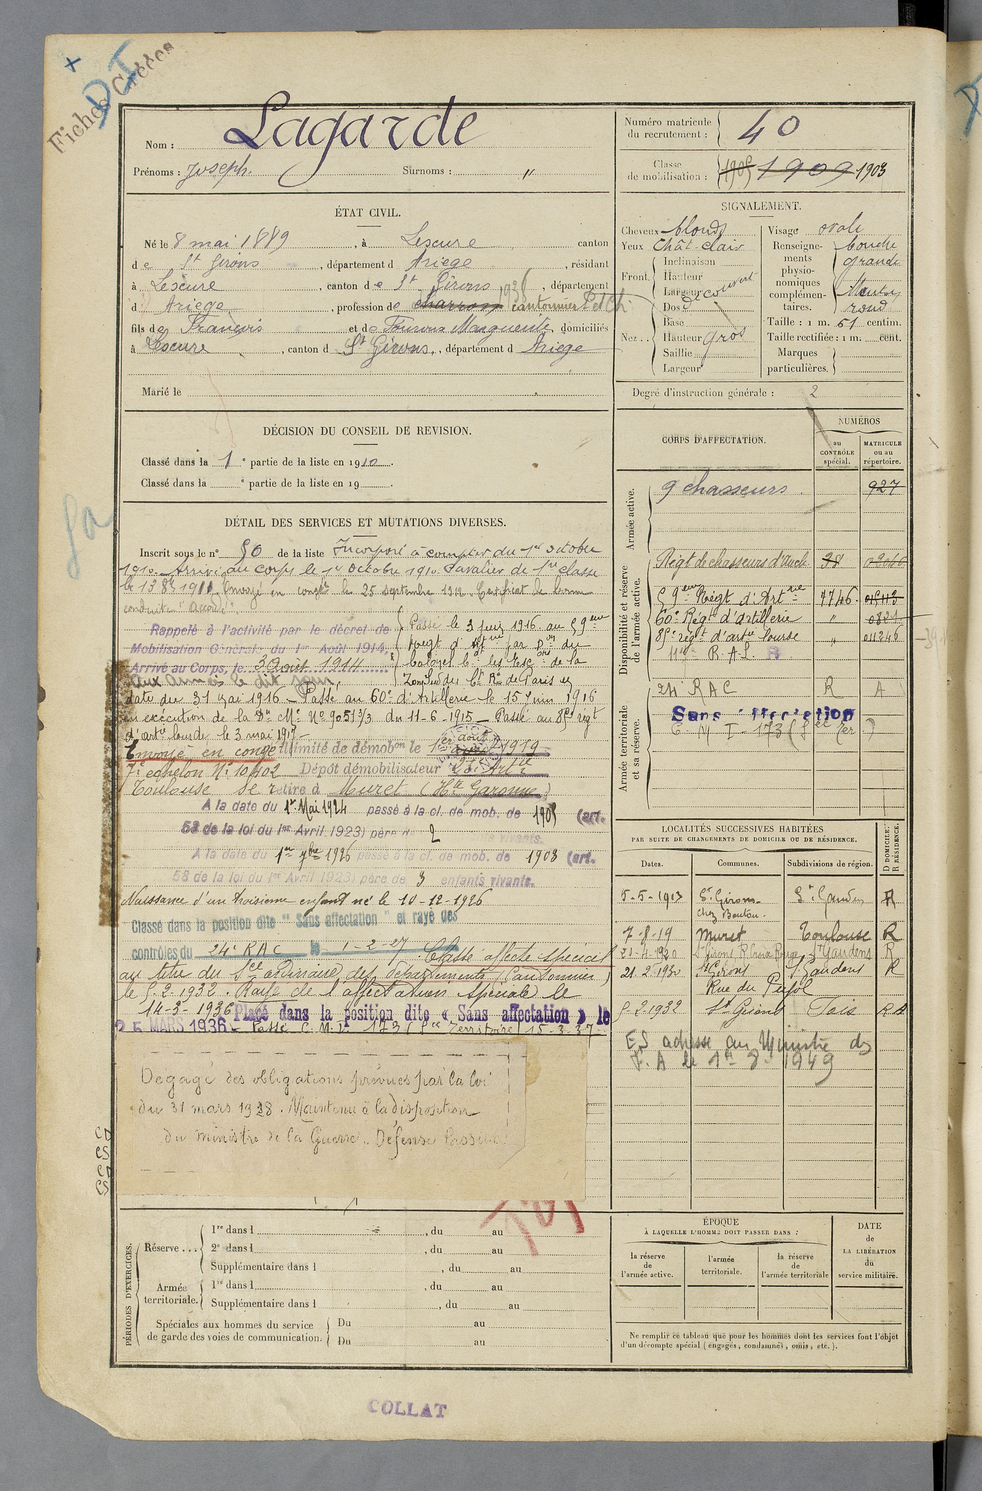 Fiches Créées
Nom : Lagarde
Prénoms : Joseph. Surnoms : "
Numéro matricule du recrutement : 40
Classe de mobilisation : 1909 1903
ÉTAT CIVIL.
Né le 8 mai 1889, à Lescure canton
de St Girons, département d Ariege, résidant
à Lescure, canton de St Girons, département
d Ariege, profession de charron cantonnier
fils de François et de Marguerite, domiciliés
à Lescure, canton d St Girons, département d Ariege
Marié le
SIGNALEMENT.
Cheveux blonds
Yeux Chât. clair
Front.
Inclinaison
Hauteur
Largeur découvert
Nez
Dos
Base
Hauteur gros
Saillie
Largeur
Visage ovale
Renseignements physionomiques complémentaires.
bouche
grande
Menton
rond
Taille : 1 m. 61 centim.
Taille rectifiée : 1 m. cent.
Marques particulières.
Degré d'instruction générale : 2
DÉCISION DU CONSEIL DE REVISION.
Classé dans la 1e partie de la liste en 1910.
Classé dans la e partie de la liste en 19
CORPS D'AFFECTATION.
NUMÉROS
au CONTRÔLE spécial.
MATRICULE ou au répertoire.
Armée active.
9 chasseurs. 927
Disponibilité et réserve de l'armée active.
Régt de chasseurs d'Auch
59em Régt d'Artrie 4746
60e Régt d'artillerie "
85e régt d'artie lourde " 011246
R. A. L.
Armée territoriale et sa réserve.
24 RAC R A
Sans affectation
DÉTAIL DES SERVICES ET MUTATIONS DIVERSES.
Inscrit sous le n° 50 de la liste Incorporé à compter du 1er octobre
1910. Arrivé au corps le 1er octobre 1910. Cavalier de 1re classe
le 13 8bre 1911. Envoyé en congé le 25 septembre 1912. Certificat de bonne
conduite "Accordé".
Rappelé à l'activité par le décret de
Mobilisation Générale du 1er Août 1914.
Arrivé au Corps, le 3 Août 1914
aux armées le dit jour.
Passé le 3 1916 au 59em
régt d'Artrie par
date du 31 mai 1916 - Passé au 60e d'Artillerie le 15 juin 1916
en exécution de la Dn Mle N° 9051 3/3 du 11-6-1915 - Passé au 85e régt
d'artie lourde le 3 mai 1917 -
Envoyé en congé illimité de démobon le 1er août 1919
7e échelon N° 10402 Dépôt démobilisateur Artie
Toulouse se retire à Muret (Hte Garonne)
A la date du 1er Mai 1924 passé à la cl. de mob. de 1905 (art.
58 de la loi du 1er Avril 1923) père de 2 vivants.
A la date du 1er 7bre 1926 passé à la cl. de mob. de 1903 (art.
58 de la loi du 1er Avril 1923) père de 3 enfants vivants.
Naissance d'un troisieme enfant né le 10-12-1926
Classé dans la position dite "Sans affectation" et rayé des
contrôles du 24e RAC le 1-2-27. Classé affecté spécial
au titre du Sce des départements (Cantonnier)
le 5-2-1932. Rayé de l'affectation spéciale le
14-3-1936 Placé dans la position dite « Sans affectation » le
25 MARS 1936 - Passé C. M. I. 173 15-3-37 -
Dégagé des obligations prévues par la loi
du 31 mars 1928. Maintenu à la disposition
du ministre de la Guerre. Défense
LOCALITÉS SUCCESSIVES HABITÉES
PAR SUITE DE CHANGEMENTS DE DOMICILE OU DE RÉSIDENCE.
Dates. Communes. Subdivisions de région. D DOMICILE. R RÉSIDENCE.
5-5-1913 St Girons St Gaudens R
chez Boutou.
7-8-19 Muret Toulouse R
21-1-1920 St Girons, R. Croix Rouge St Gaudens R
21-2-1930 St Girons St Gaudens R
Rue du Pujol
5-2-1932 St Girons
ES adressé au Ministre des
P. A le 1949
PÉRIODES D'EXERCICES.
Réserve ...
1re dans l , du au
2e dans l , du au
Supplémentaire dans l , du au
Armée territoriale.
1re dans l , du au
Supplémentaire dans l , du au
Spéciales aux hommes du service de garde des voies de communication.
Du au
Du au
ÉPOQUE
À LAQUELLE L'HOMME DOIT PASSER DANS :
la réserve de l'armée active.
l'armée territoriale.
la réserve de l'armée territoriale
DATE de LA LIBÉRATION du service militaire.
Ne remplir ce tableau que pour les hommes dont les services font l'objet
d'un décompte spécial (engagés, condamnés, omis, etc.).
COLLAT